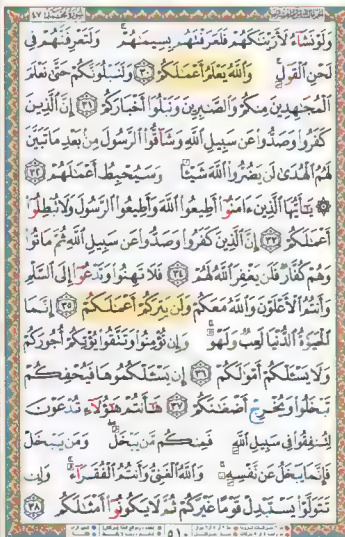 سُورَةُ مُحَمَّد ٤٧
وَلَوْ نَشَآءُ لَأَرَيْنَٰكَهُمْ فَلَعَرَفْتَهُم بِسِيمَٰهُمْ وَلَتَعْرِفَنَّهُمْ فِى
لَحْنِ ٱلْقَوْلِ وَٱللَّهُ يَعْلَمُ أَعْمَٰلَكُمْ ٣٠ وَلَنَبْلُوَنَّكُمْ حَتَّىٰ نَعْلَمَ
ٱلْمُجَٰهِدِينَ مِنكُمْ وَٱلصَّٰبِرِينَ وَنَبْلُوَا۟ أَخْبَارَكُمْ ٣١ إِنَّ ٱلَّذِينَ
كَفَرُوا۟ وَصَدُّوا۟ عَن سَبِيلِ ٱللَّهِ وَشَآقُّوا۟ ٱلرَّسُولَ مِنۢ بَعْدِ مَا تَبَيَّنَ
لَهُمُ ٱلْهُدَىٰ لَن يَضُرُّوا۟ ٱللَّهَ شَيْـًٔا وَسَيُحْبِطُ أَعْمَٰلَهُمْ ٣٢
۞ يَٰٓأَيُّهَا ٱلَّذِينَ ءَامَنُوٓا۟ أَطِيعُوا۟ ٱللَّهَ وَأَطِيعُوا۟ ٱلرَّسُولَ وَلَا تُبْطِلُوٓا۟
أَعْمَٰلَكُمْ ٣٣ إِنَّ ٱلَّذِينَ كَفَرُوا۟ وَصَدُّوا۟ عَن سَبِيلِ ٱللَّهِ ثُمَّ مَاتُوا۟
وَهُمْ كُفَّارٌ فَلَن يَغْفِرَ ٱللَّهُ لَهُمْ ٣٤ فَلَا تَهِنُوا۟ وَتَدْعُوٓا۟ إِلَى ٱلسَّلْمِ
وَأَنتُمُ ٱلْأَعْلَوْنَ وَٱللَّهُ مَعَكُمْ وَلَن يَتِرَكُمْ أَعْمَٰلَكُمْ ٣٥ إِنَّمَا
ٱلْحَيَوٰةُ ٱلدُّنْيَا لَعِبٌ وَلَهْوٌ وَإِن تُؤْمِنُوا۟ وَتَتَّقُوا۟ يُؤْتِكُمْ أُجُورَكُمْ
وَلَا يَسْـَٔلْكُمْ أَمْوَٰلَكُمْ ٣٦ إِن يَسْـَٔلْكُمُوهَا فَيُحْفِكُمْ
تَبْخَلُوا۟ وَيُخْرِجْ أَضْغَٰنَكُمْ ٣٧ هَٰٓأَنتُمْ هَٰٓؤُلَآءِ تُدْعَوْنَ
لِتُنفِقُوا۟ فِى سَبِيلِ ٱللَّهِ فَمِنكُم مَّن يَبْخَلُ وَمَن يَبْخَلْ
فَإِنَّمَا يَبْخَلُ عَن نَّفْسِهِۦ وَٱللَّهُ ٱلْغَنِىُّ وَأَنتُمُ ٱلْفُقَرَآءُ وَإِن
تَتَوَلَّوْا۟ يَسْتَبْدِلْ قَوْمًا غَيْرَكُمْ ثُمَّ لَا يَكُونُوٓا۟ أَمْثَٰلَكُم ٣٨
٥١٠